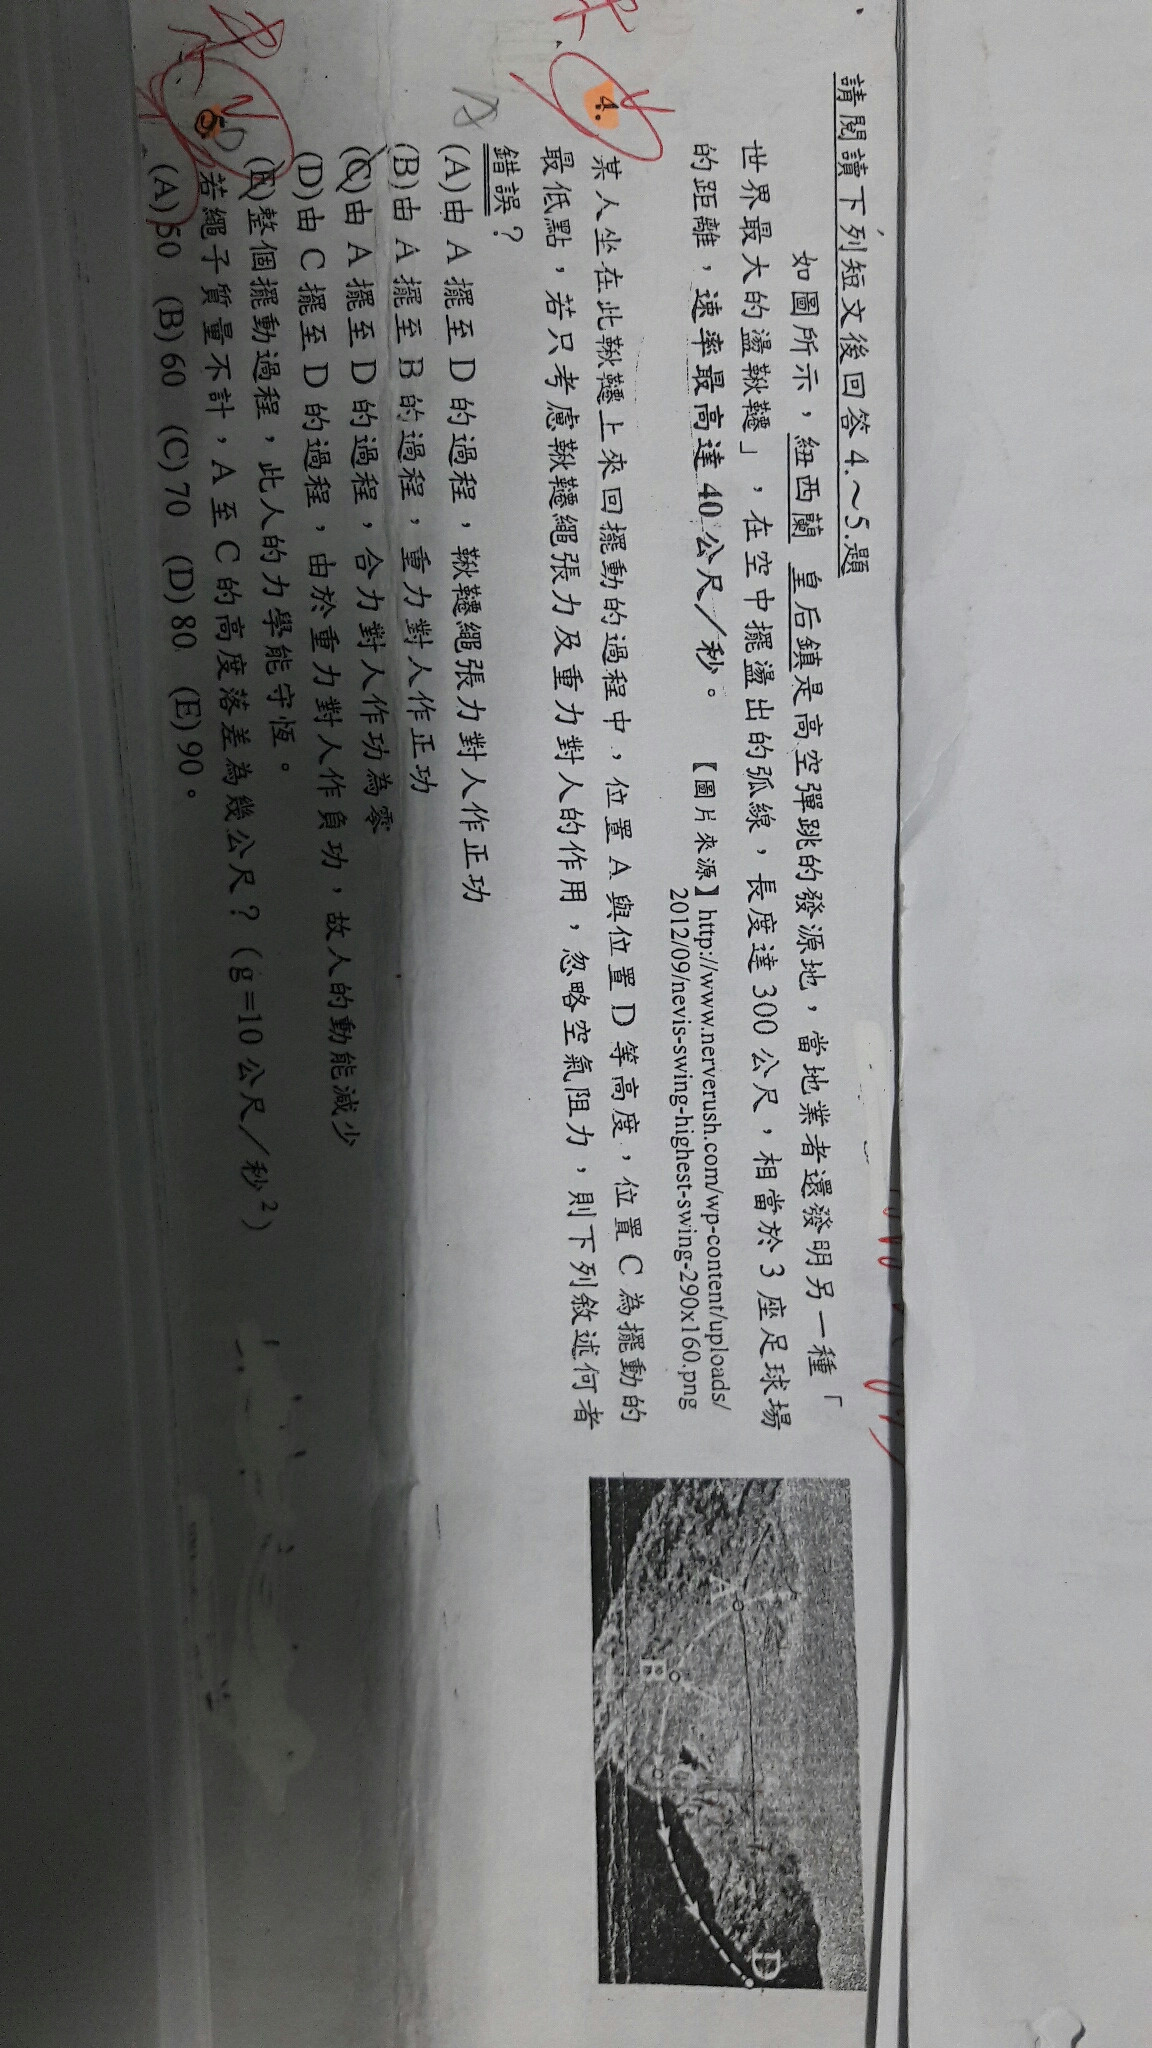 請閱讀下列短文後回答 4.～5.題
如圖所示，紐西蘭 皇后鎮是高空彈跳的發源地，當地業者還發明另一種「
世界最大的盪鞦韆」，在空中擺盪出的弧線，長度達 300 公尺，相當於 3 座足球場
的距離，速率最高達 40 公尺／秒。
【圖片來源】http://www.nerverush.com/wp-content/uploads/
2012/09/nevis-swing-highest-swing-290x160.png
4. 某人坐在此鞦韆上來回擺動的過程中，位置 A 與位置 D 等高度，位置 C 為擺動的
最低點，若只考慮鞦韆繩張力及重力對人的作用，忽略空氣阻力，則下列敘述何者
錯誤？
(A)由 A 擺至 D 的過程，鞦韆繩張力對人作正功
(B)由 A 擺至 B 的過程，重力對人作正功
(C)由 A 擺至 D 的過程，合力對人作功為零
(D)由 C 擺至 D 的過程，由於重力對人作負功，故人的動能減少
(E)整個擺動過程，此人的力學能守恆。
5. 若繩子質量不計，A 至 C 的高度落差為幾公尺？(g=10 公尺／秒²)
(A)50 (B)60 (C)70 (D)80 (E)90。
A
B
C
D